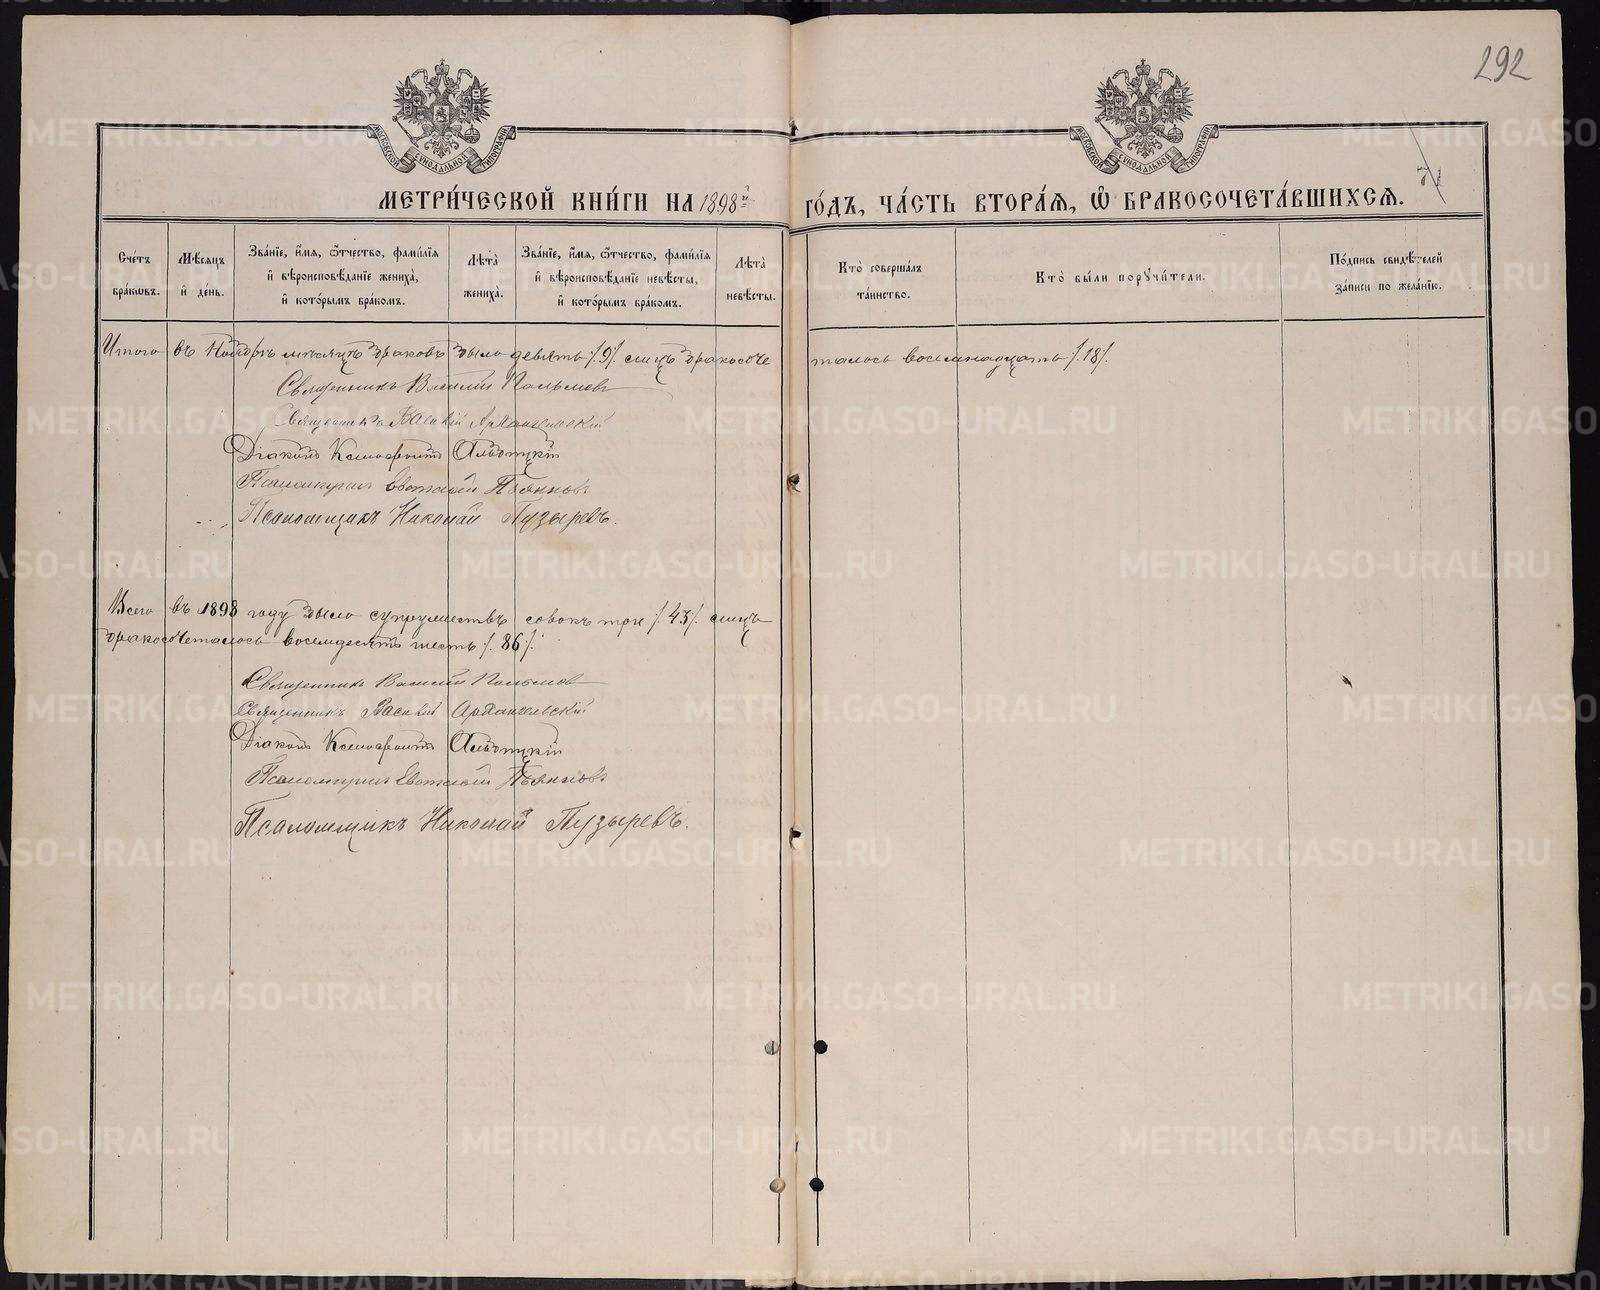 292
МОСКОВСКОЙ СѴНОДАЛЬНОЙ ТИПОГРАФІИ
МОСКОВСКОЙ СѴНОДАЛЬНОЙ ТИПОГРАФІИ
МЕТРИ́ЧЕСКОЙ КНИ́ГИ НА 1898й ГО́ДЪ, ЧА́СТЬ ВТОРА́Я, Ѡ БРАКОСОЧЕТА́ВШИХСЯ.
Сче́тъ бра́ковъ.
Мѣ́сяцъ и҆ де́нь.
Зва́нїе, и҆́мя, ѻ҆́тчество, фами́лїя и҆ вѣроисповѣ́данїе жениха̀, и҆ кото́рымъ бра́комъ.
Лѣ́та жениха̀.
Зва́нїе, и҆́мя, ѻ҆́тчество, фами́лїя и҆ вѣроисповѣ́данїе невѣ́сты, и҆ кото́рымъ бра́комъ.
Лѣ́та невѣ́сты.
Кто̀ соверша́лъ та́инство.
Кто̀ бы́ли порꙋчи́тели.
По́дпись свидѣ́телей за́писи по жела́нїю.
Итого въ Ноябрѣ мѣсяцѣ браковъ было девять /.9/. лицъ бракосоче талось восемнадцать /.18/.
Священникъ Василій
Священникъ Василій Архангельскій
Діаконъ Ксенофонтъ
Псаломщикъ Евгеній Пьянковъ
Псаломщикъ Николай Пузыревъ.
Всего въ 1898 году было супружествъ сорокъ три /.43/. лицъ
бракосочеталось восемьдесятъ шесть /.86./.
Священникъ Василій
Священникъ Василій Архангельскій
Діаконъ Ксенофонтъ
Псаломщикъ Евгеній Пьянковъ
Псаломщикъ Николай Пузыревъ.
METRIKI.GASO-URAL.RU